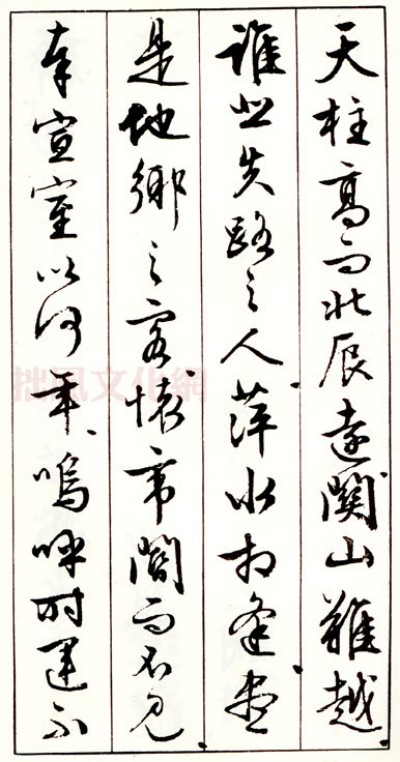 天柱高而北辰遠關山難越
誰悲失路之人萍水相逢盡
是他鄉之客懷帝閽而不見
奉宣室以何年嗚呼時運不
拙風文化網